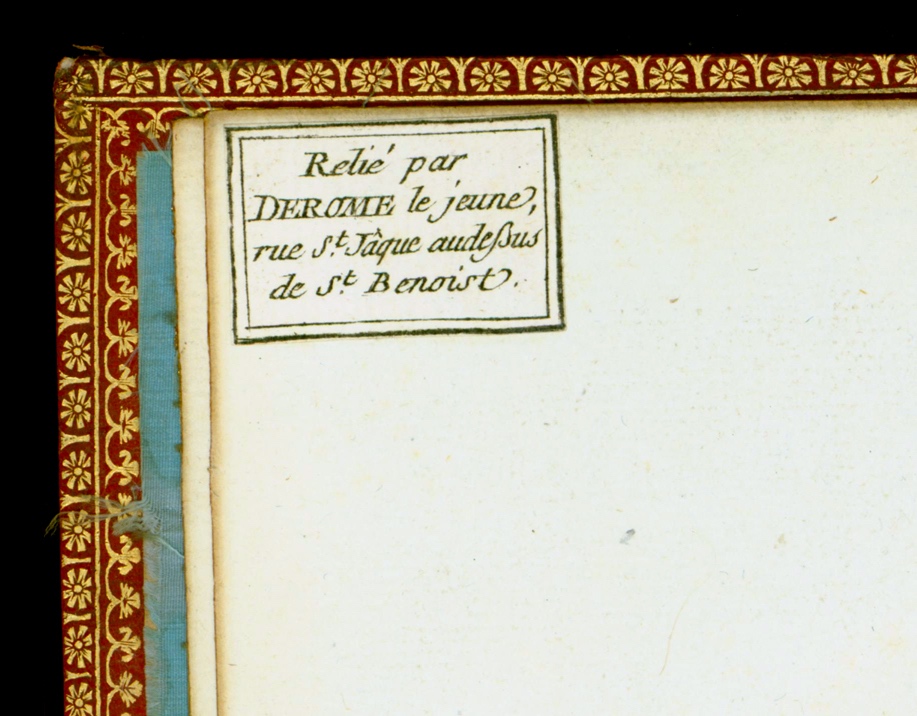 Relié par
DEROME le jeune,
rue St. Jâque audeßus
de St. Benoist.